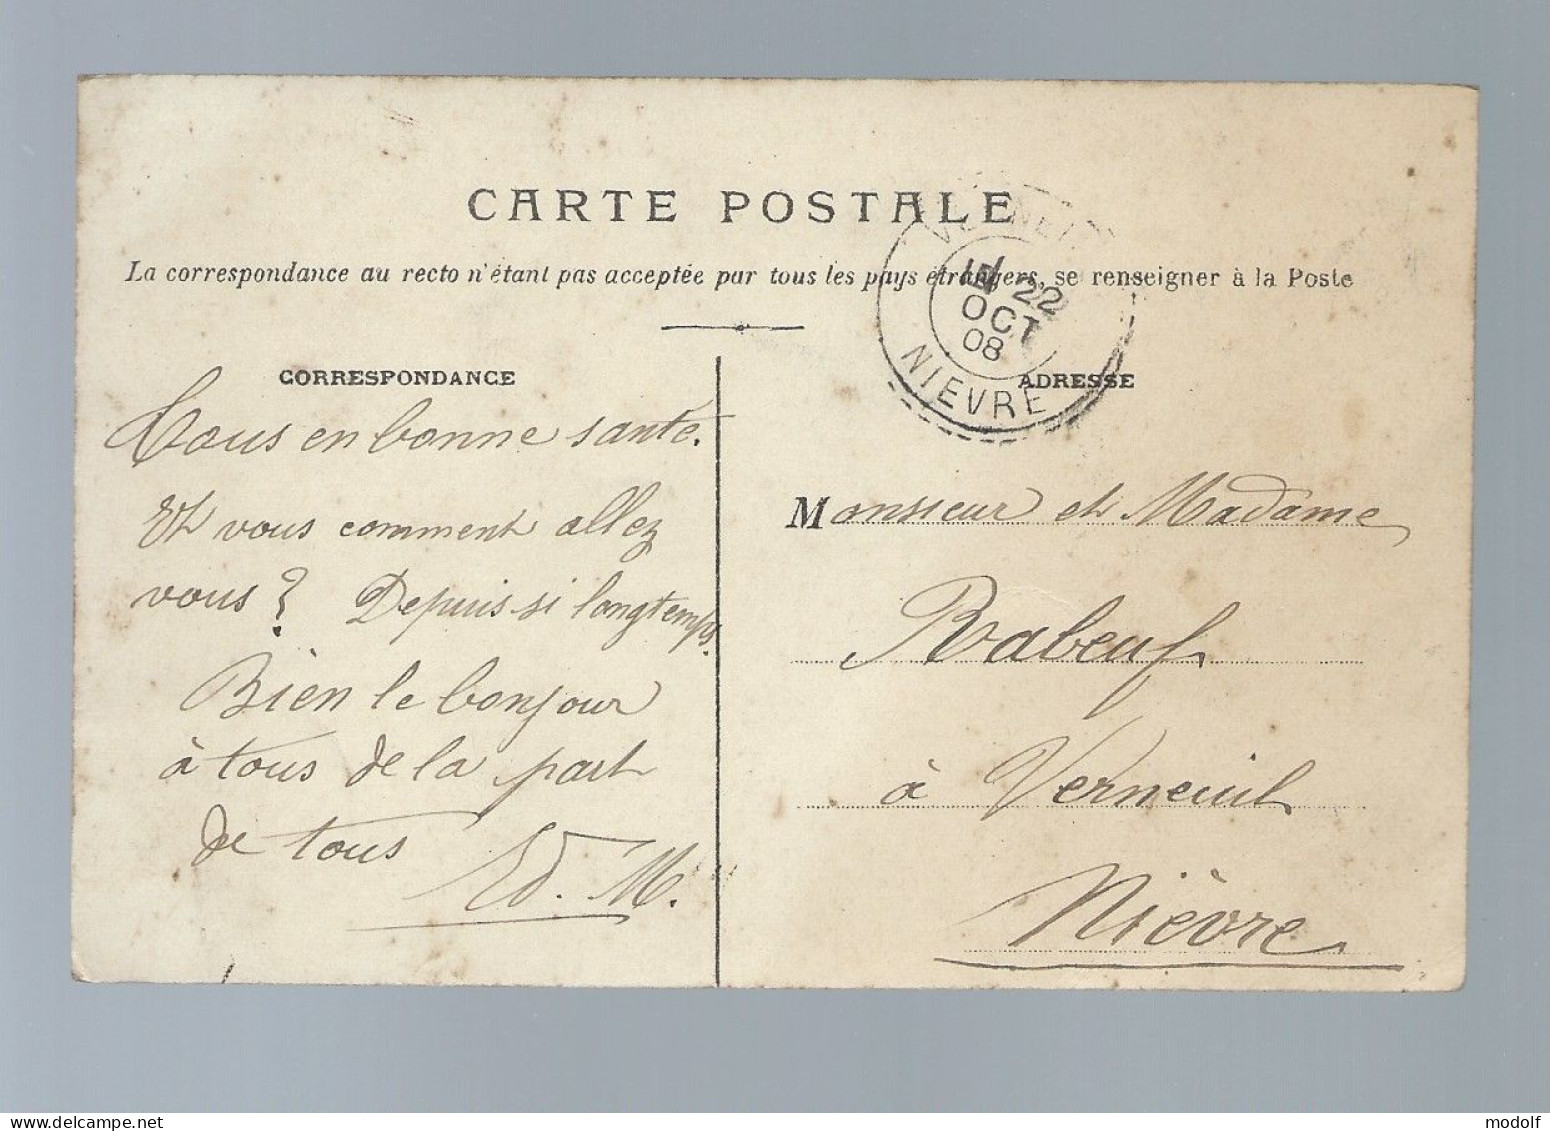 CARTE POSTALE
La correspondance au recto n'étant pas acceptée par tous les pays étrangers, se renseigner à la Poste
NIEVRE
22
OCT
08
CORRESPONDANCE
Tous en bonne sante.
Et vous comment allez
vous ? Depuis si longtemps.
Bien le bonjour
à tous de la part
de tous
Ed. M.
ADRESSE
Monsieur et Madame
Rabeuf
à Verneuil
Nièvre
modolf